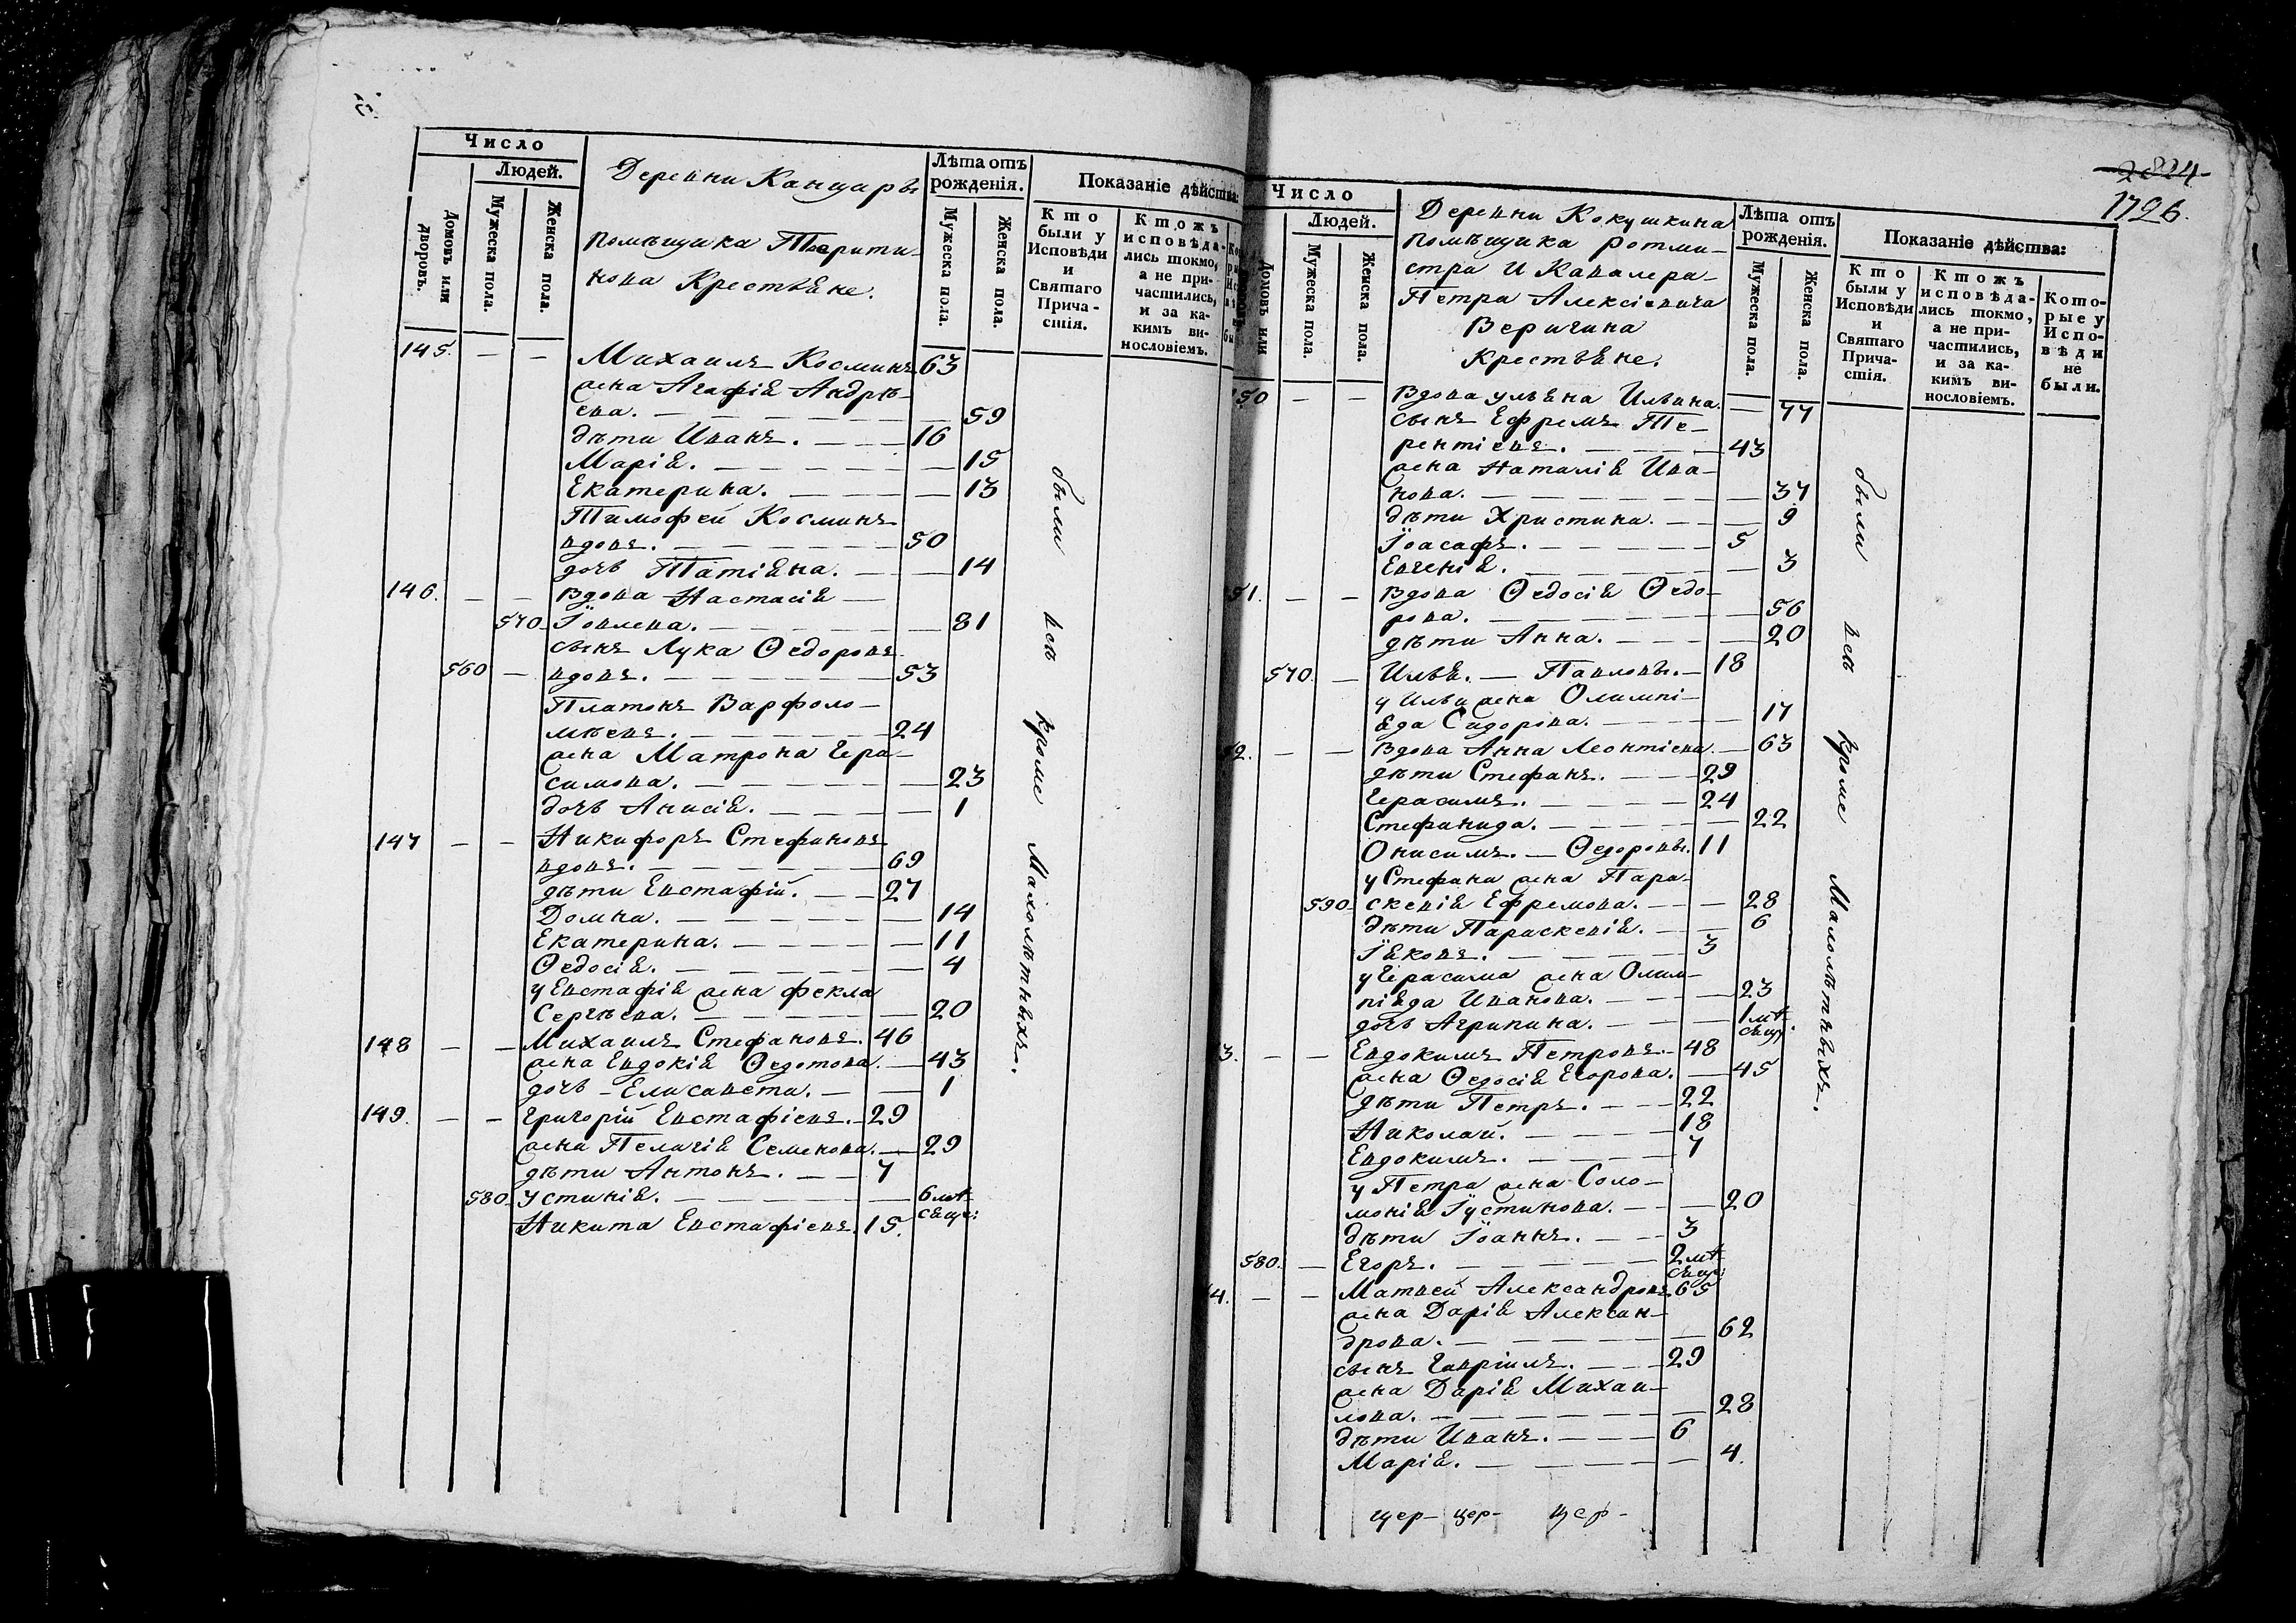 Число
Людей.
Домовъ или дворовъ.
Мужеска пола.
Женска пола.
Деревни Канцыры
помѣщика Тверити-
нова Крестьяне.
Лѣта отъ
рожденія.
Мужеска пола.
Женска пола.
Показаніе дѣйства:
Кто
были у
Исповѣди
и
Святаго
Прича-
стія.
Ктожъ
исповѣда-
лись токмо,
а не при-
частились,
и за ка-
кимъ ви-
нословіемъ.
145. — — Михаилъ Косминъ 63
жена Агафія Андрѣ-
ева. — 59
дѣти Иванъ. — 16
Марія. — 15
Екатерина. — 13
Тимофей Косминъ
вдовъ. — 50
дочь Татіяна. — 14
146. — — Вдова Настасія —
570. Іовлева. — 81
сынъ Лука Ѳедоровъ
560 — вдовъ. — 53
Платонъ Варфоло-
мѣевъ. — 24
жена Матрона Гера-
симова. — 23
дочь Анисія. — 1
147 — — Никифоръ Стефановъ
вдовъ. — 69
дѣти Евстафій. — 27
Домна. — 14
Екатерина. — 11
Ѳедосія. — 4
у Евстафія жена Фекла
Сергѣева. — 20
148 — — Михаилъ Стефановъ. 46
жена Евдокія Ѳедотова. — 43
дочь Елисавета. — 1
149. — — Григорій Евстафіевъ. — 29
жена Пелагія Семенова. — 29
дѣти Антонъ. — 7
580. Устинія. — 6 мѣ-
сяце:
Никита Евстафіевъ. 15.
были всѣ кроме Малолѣтныхъ.
2824
1726.
Число
Людей.
Домовъ или
Мужеска пола.
Женска пола.
Деревни Кокушкина
помѣщика ротми-
стра и Кавалера
Петра Алексіевича
Веригина
Крестьяне.
Лѣта отъ
рожденія.
Мужеска пола.
Женска пола.
Показаніе дѣйства:
Кто
были у
Исповѣди
и
Святаго
Прича-
стія.
Ктожъ
исповѣда-
лись токмо,
а не при-
частились,
и за ка-
кимъ ви-
нословіемъ.
Кото-
рые у
Испо-
вѣди
не
были.
150 — — Вдова Ульяна Ильина. — 77
сынъ Ефремъ Те-
рентіевъ. — 43
жена Наталія Ива-
нова. — 37
дѣти Христина. — 9
Іоасафъ. — 5
Евгенія. — 3
51. — — Вдова Ѳедосія Ѳедо-
рова. — 56
дѣти Анна. — 20
570. — Илья. — Павловы. — 18
у Ильи жена Олимпі-
яда Сидорова. — 17
52. — — Вдова Анна Леонтіева. — 63
дѣти Стефанъ. — 29
Герасимъ. — 24
Стефанида. — 22
Онисимъ. — Ѳедоровы. 11
у Стефана жена Пара-
590. скевія Ефремова. — 28
дѣти Параскевія. — 6
Іяковъ. — 3
у Герасима жена Олим-
піяда Иванова. — 23
дочь Агрипина. — 1 мѣ-
сяц:
3. — — Евдокимъ Петровъ. — 48
жена Ѳедосія Егорова. — 45
дѣти Петръ. — 22
Николай. — 18
Евдокимъ. — 7
у Петра жена Соло-
монія Іустинова. — 20
дѣти Іоаннъ. — 3
580. — Егоръ. — 2 мѣ-
сяц:
4. — — Матвей Александровъ 65
жена Дарія Алексан-
дрова. — 62
сынъ Гавріилъ. — 29
жена Дарія Михаи-
лова. — 28
дѣти Иванъ. — 6
Марія. — 4.
были всѣ кроме Малолѣтныхъ.
цер- цер- цер-